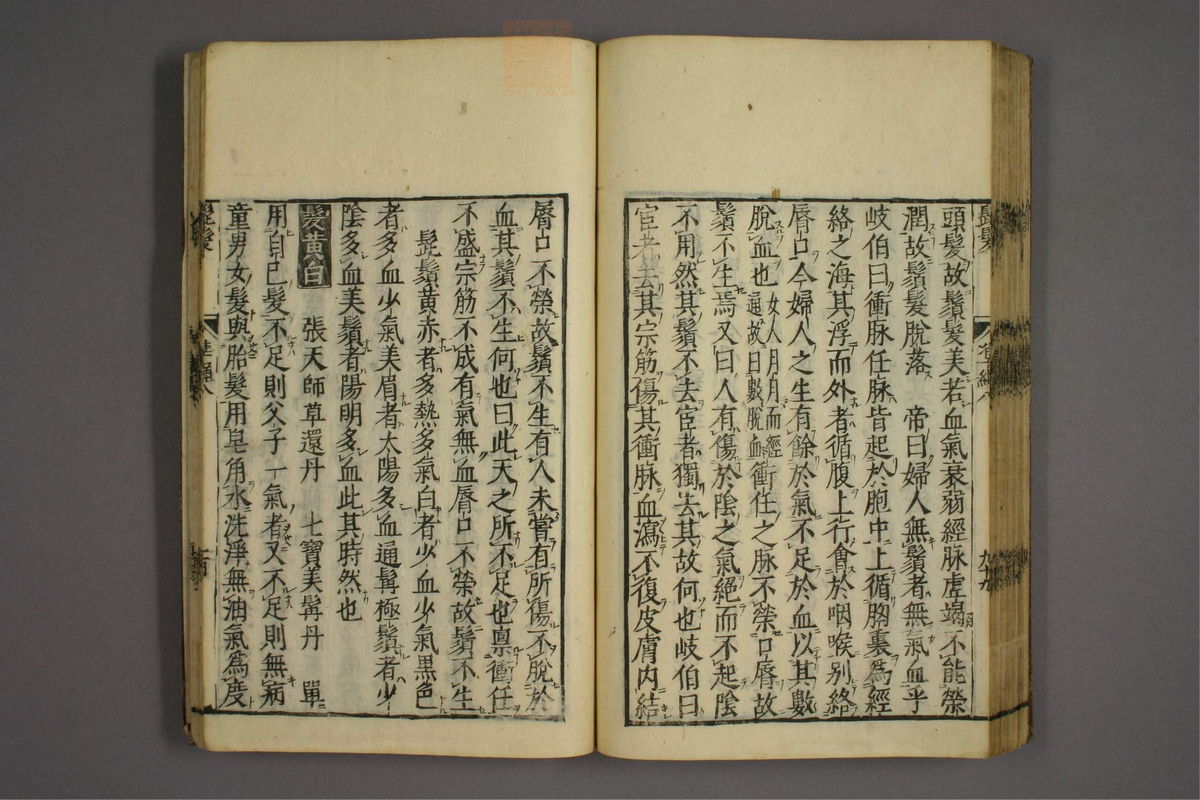 頭髮故鬚髮美若血氣衰弱經脉虛竭不能榮
潤故鬚髮脫落　帝曰婦人無鬚者無氣血乎
岐伯曰衝脉任脉皆起於胞中上循胸裏爲經
絡之海其浮而外者循腹上行會於咽喉别絡
唇口今婦人之生有餘於氣不足於血以其數
脫血也女人月月而經通故曰數脫血衝任之脉不榮口唇故
鬚不生焉又曰人有傷於陰之氣絕而不起陰
不用然其鬚不去宦者獨去其故何也岐伯曰
宦者去其宗筋傷其衝脉血瀉不復皮膚内結
唇口不榮故鬚不生有人未嘗有所傷不脫於
血其鬚不生何也曰此天之所不足也禀衝任
不盛宗筋不成有氣無血唇口不榮故鬚不生
髭鬚黄赤者多熱多氣白者少血少氣黒色
者多血少氣美眉者太陽多血通髯極鬚者少
陰多血美鬚者陽明多血此其時然也
髮黄白
張天師草還丹　七寶美髯丹　單
用自己髮不足則父子一氣者又不足則無病
童男女髮與胎髮用皂角水洗淨無油氣爲度
髭髮
九九
髭髮